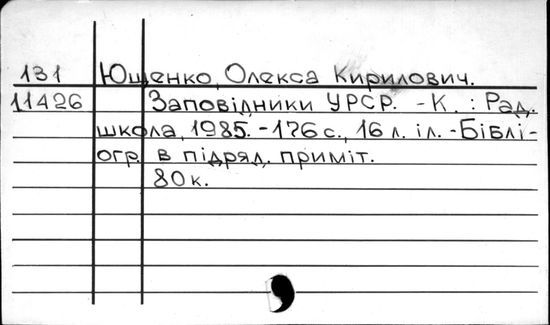 131 Ющенко, Олекса Кирилович.
11426 Заповідники УРСР. -К. : Рад.
школа, 1985. -176 с., 16 л. іл. -Біблі-
огр. в підряд. приміт.
80 к.